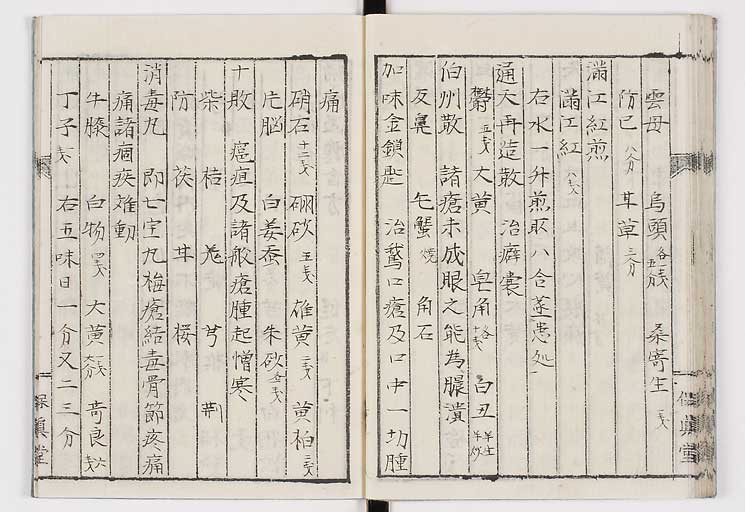 雲母 烏頭各五戔 桑寄生三戔
防已八分 耳草三分
満江紅煎
満江紅八戔
右水一升煎取八合塗患処
通天再造散 治癖裳
鬱五戔大黄 皂角各十戔 白丑半生半炒
伯州散 諸瘡未成眼之能為膿潰
反鼻 乇蟹焼 角石
加味金鎖匙 治鵞口瘡及口中一切腫
痛
硝石十二戔 硼砂五戔 雄黄二戔 黄柏三戔
片脳 白姜蚕 朱砂五戔
十敗 癌疽及諸般瘡腫起憎寒
柴 桔 羌 芎 荊
防 茯 耳 桜
消毒丸 即七宝丸梅瘡結毒骨節疼痛
痛諸痼疾難動
牛膝 白物四戔 大黄六戔 奇良六戔
丁子戔 右五味日一分又二三分
保真堂